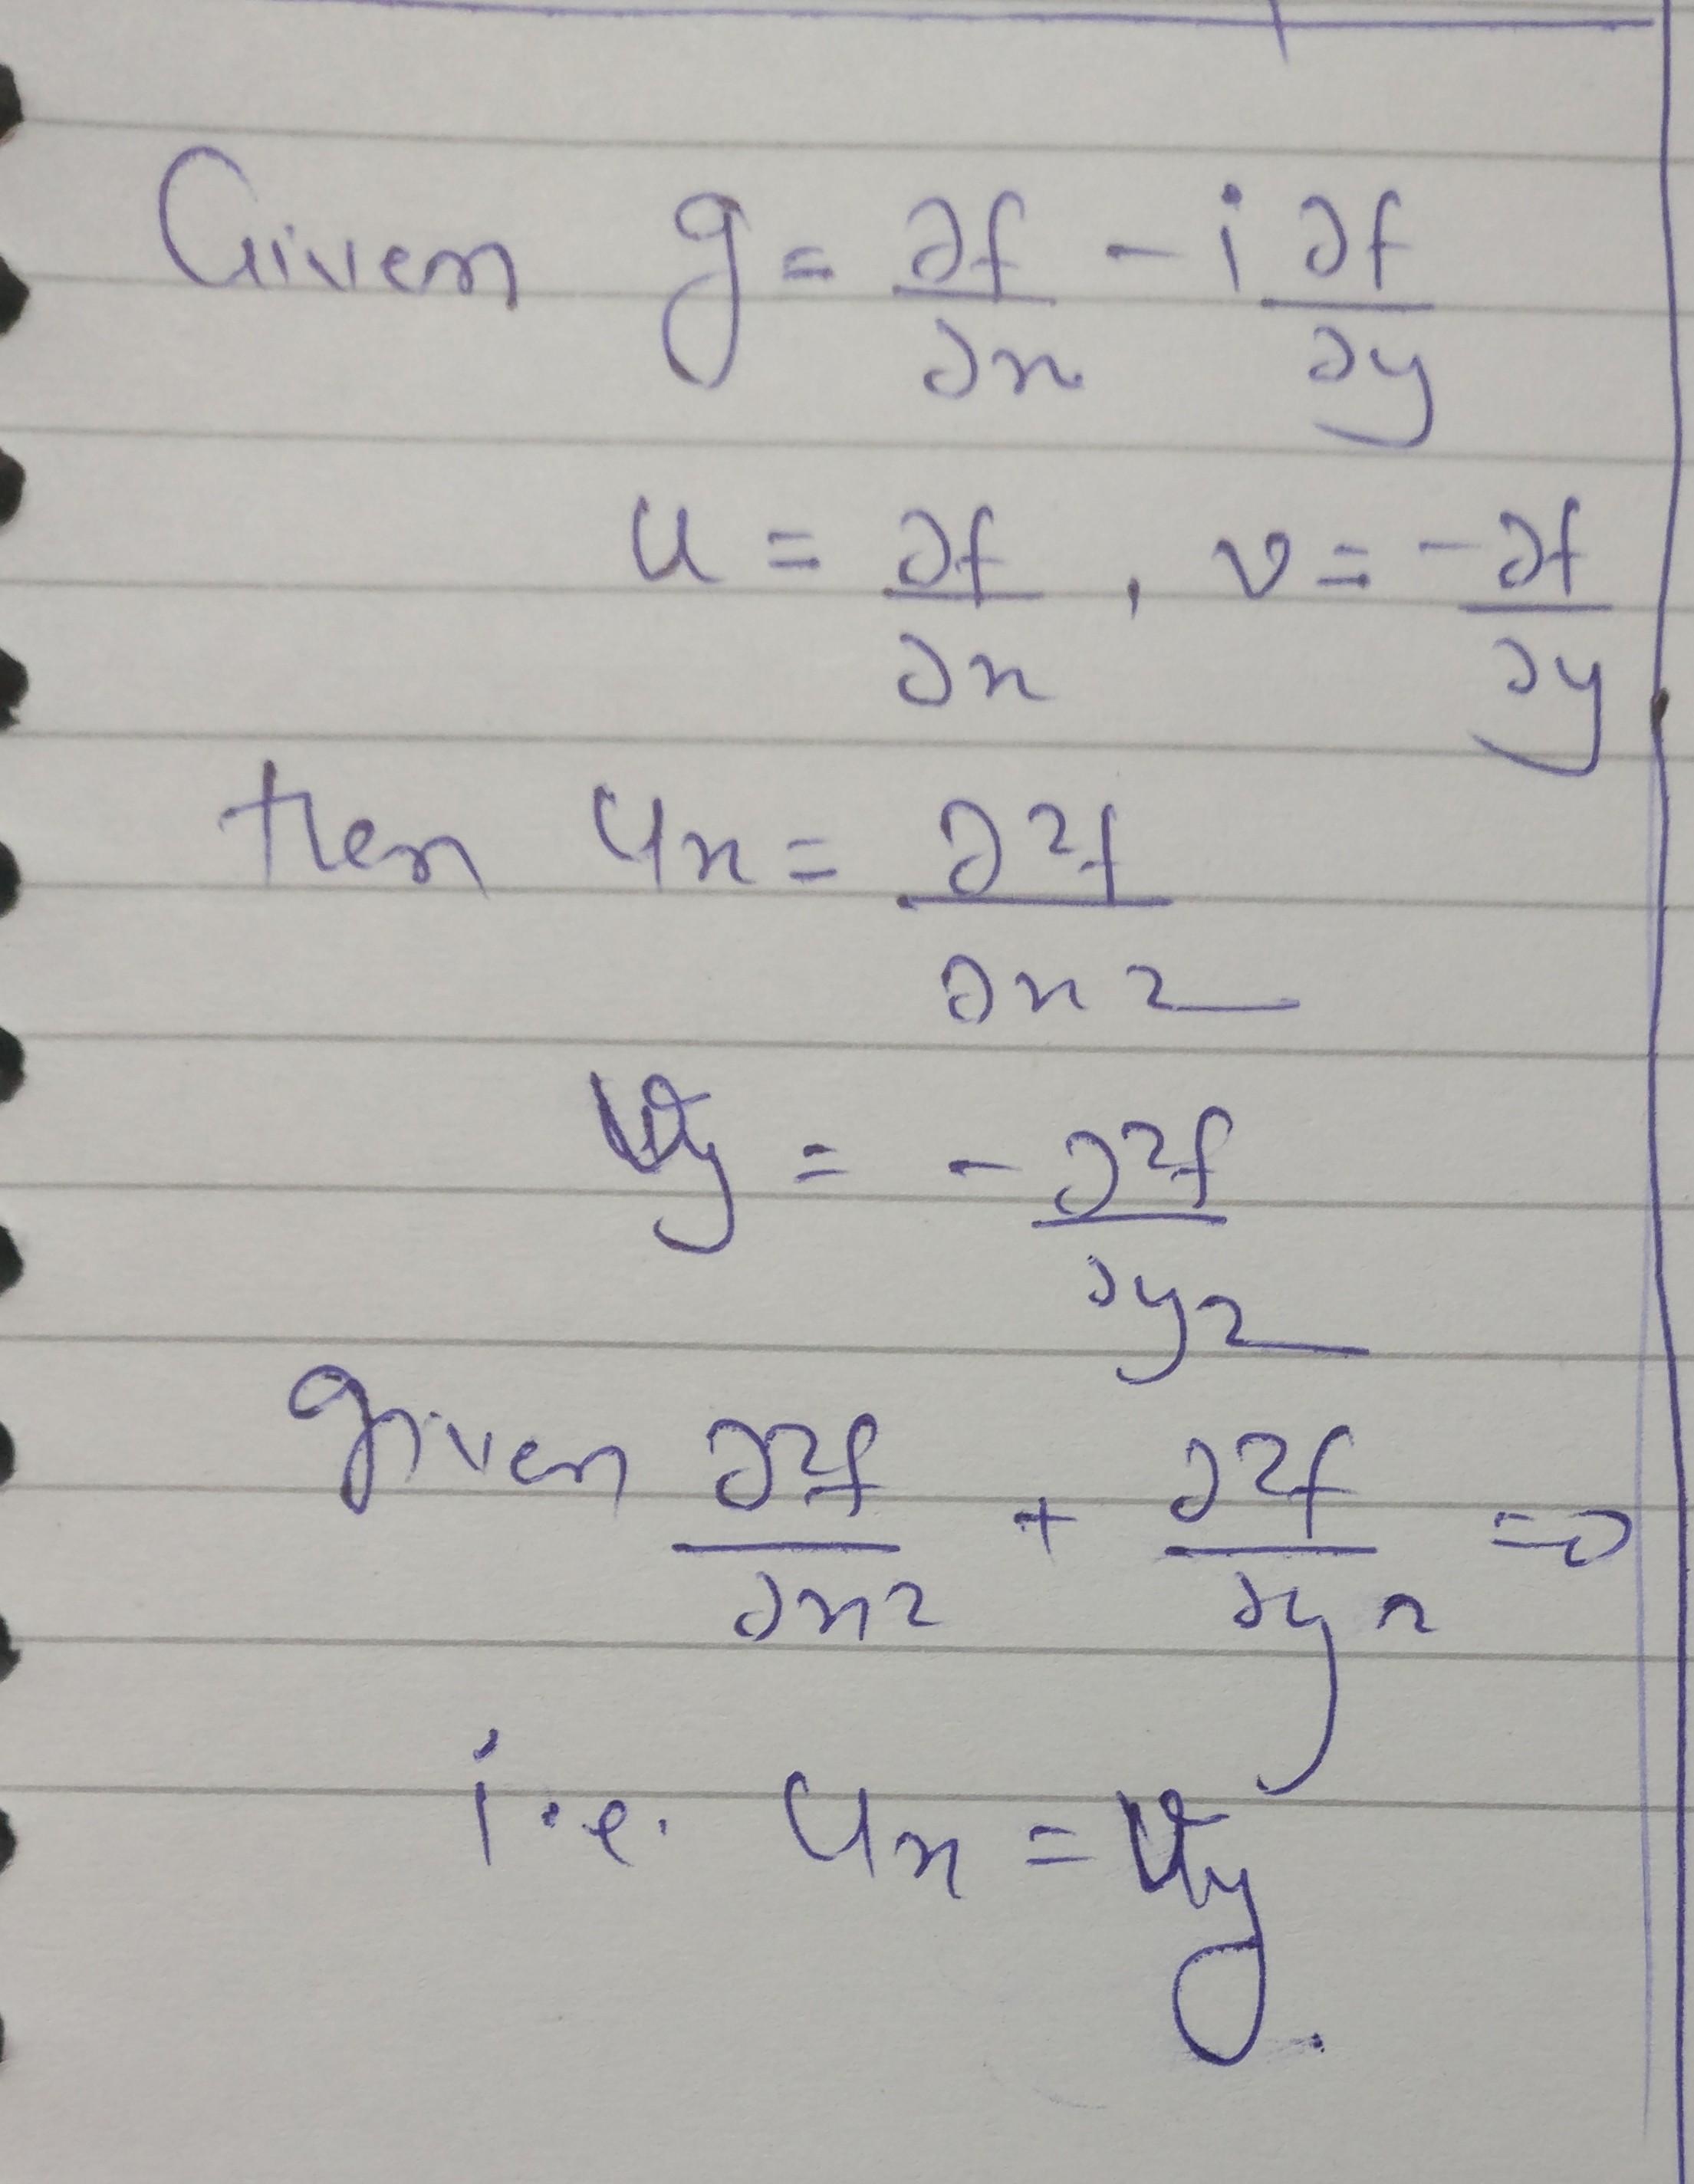 Given g = ∂f/∂x - i ∂f/∂y
u = ∂f/∂x , v = -∂f/∂y
then ux = ∂²f/∂x²
vy = - ∂²f/∂y²
given ∂²f/∂x² + ∂²f/∂y² = 0
i.e. ux = vy.